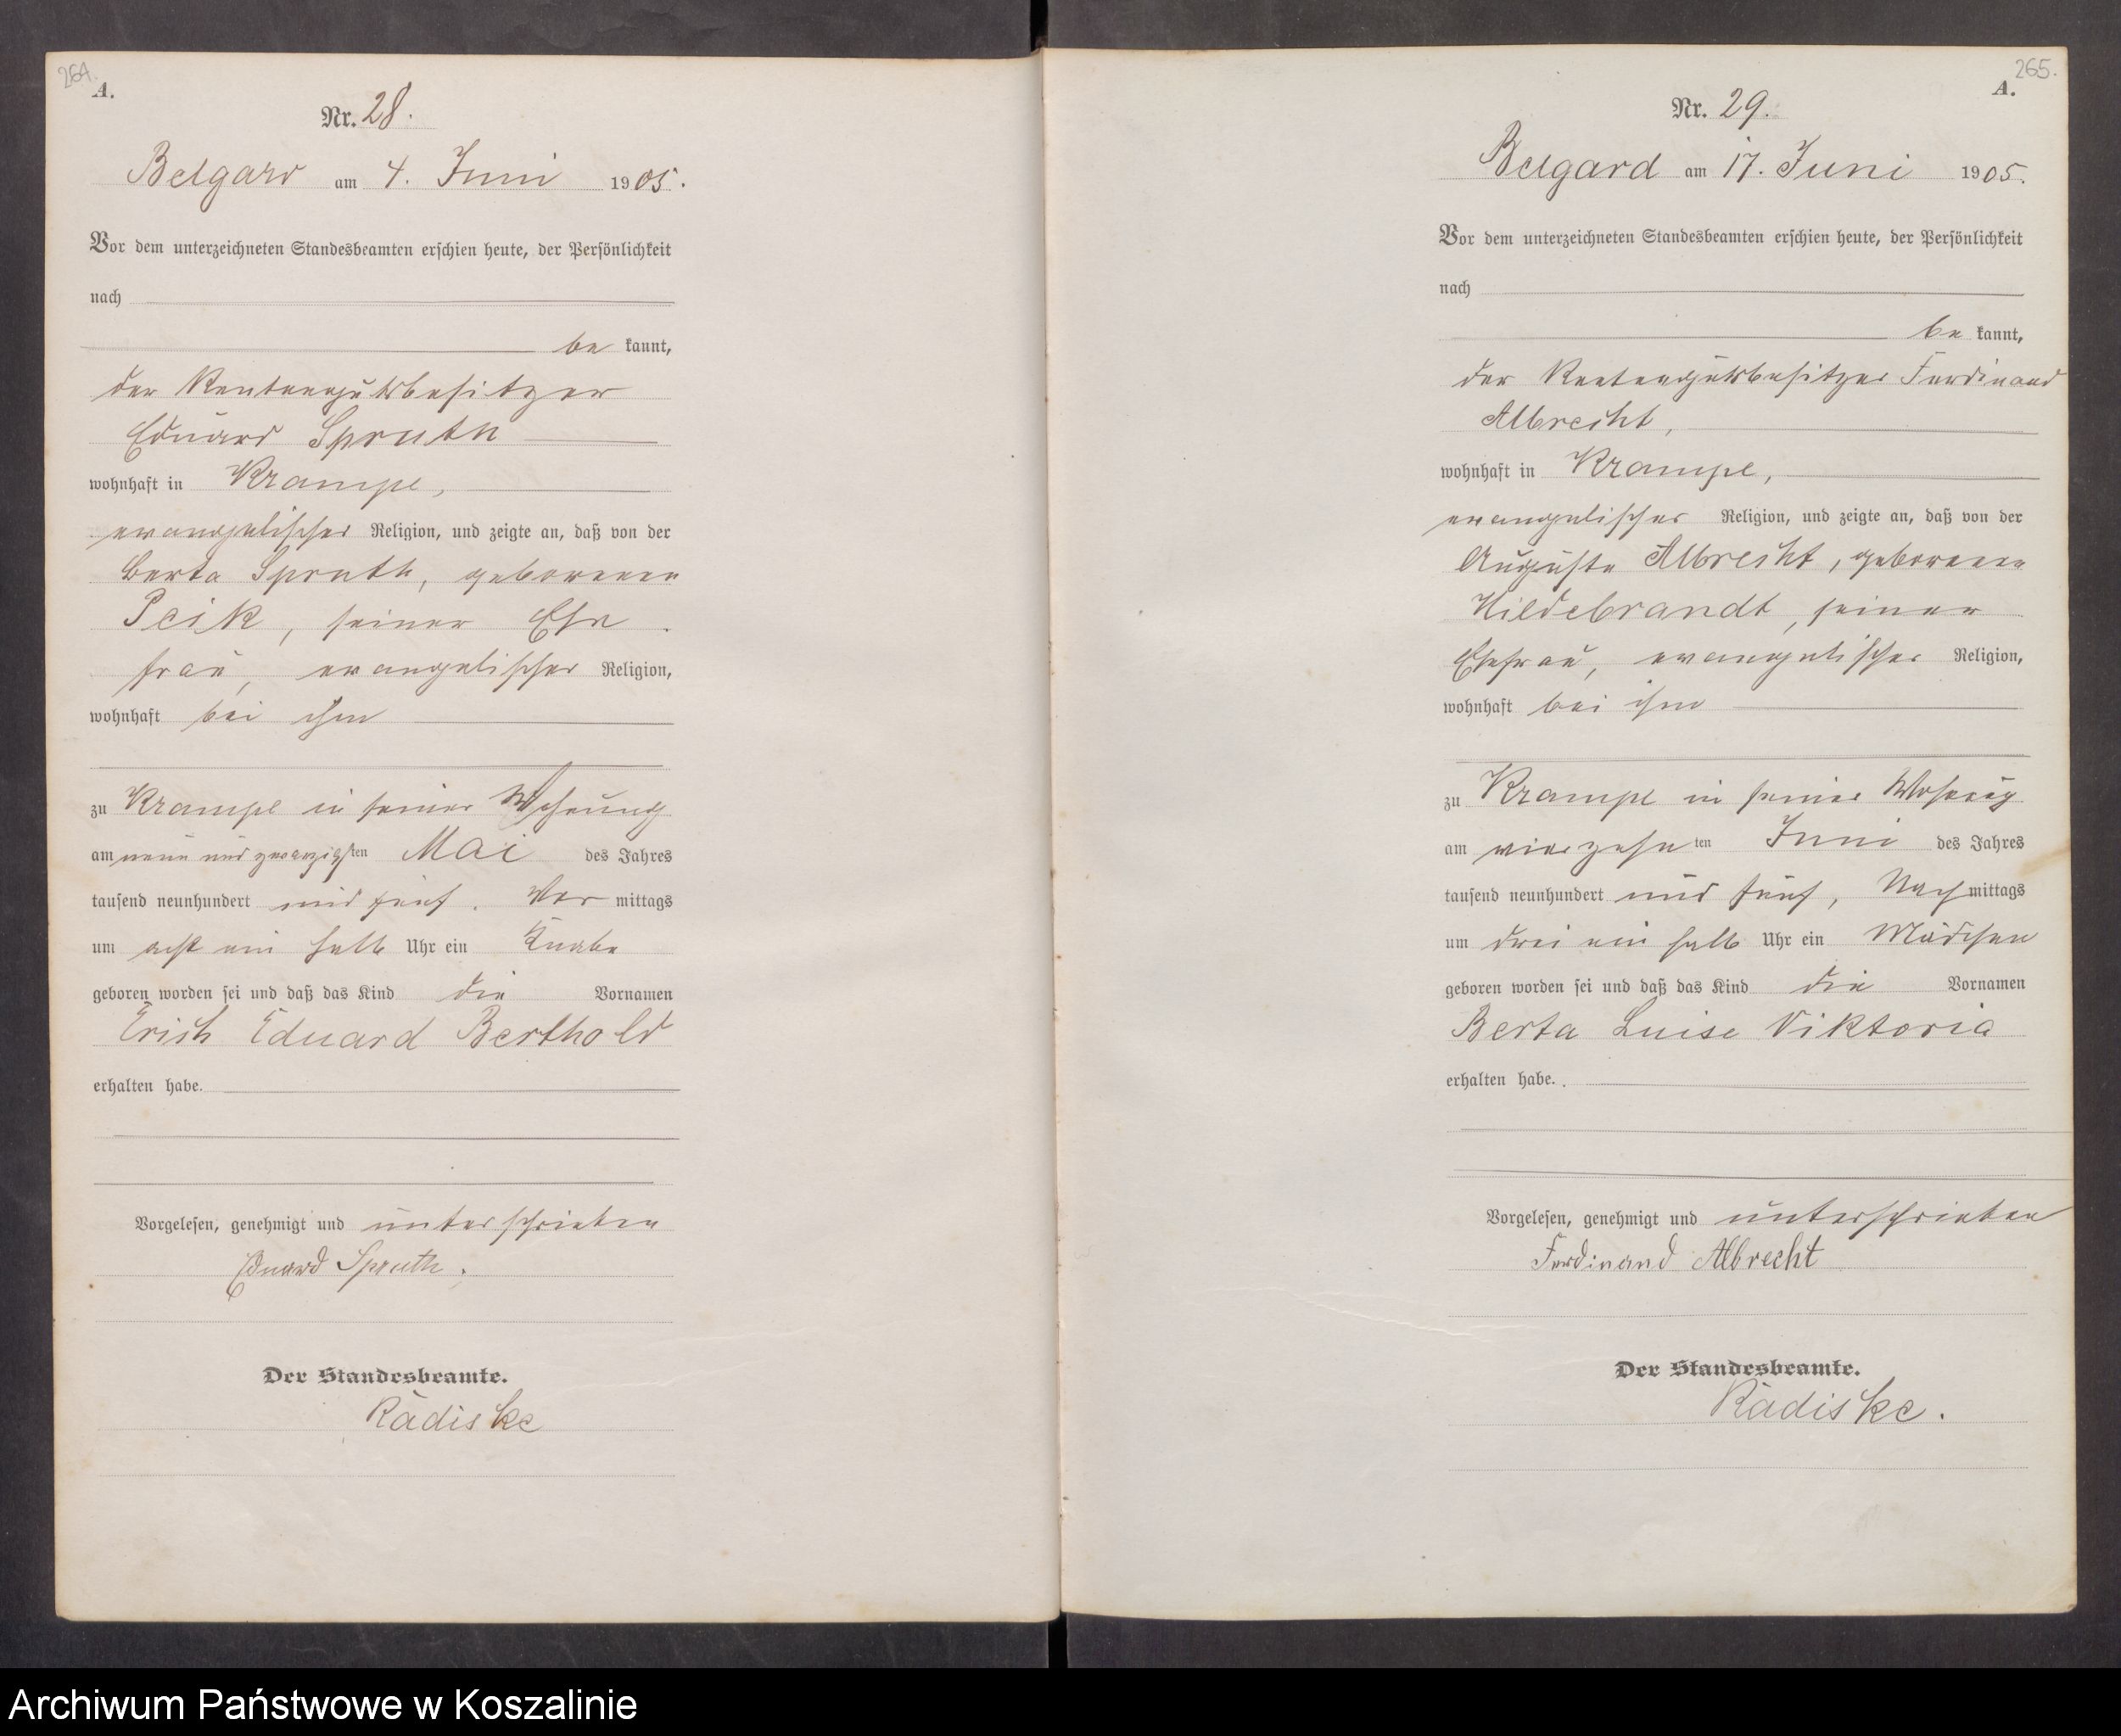 264.
A.
Nr. 28.
Belgard am 4. Juni 1905.
Vor dem unterzeichneten Standesbeamten erschien heute, der Persönlichkeit
nach
be kannt,
der Rentengutsbesitzer
Eduard Spruth
wohnhaft in Krampe,
evangelischer Religion, und zeigte an, daß von der
Berta Spruth, geborenen
Peik, seiner Ehe
frau, evangelischer Religion,
wohnhaft bei ihm
zu Krampe in seiner Wohnung
am neun und zwanzigsten Mai des Jahres
tausend neunhundert und fünf. Vor mittags
um acht ein halb Uhr ein Knabe
geboren worden sei und daß das Kind die Vornamen
Erich Eduard Berthold
erhalten habe.
Vorgelesen, genehmigt und unterschrieben
Eduard Spruth.
Der Standesbeamte.
Radiske
265.
A.
Nr. 29.
Belgard am 17. Juni 1905.
Vor dem unterzeichneten Standesbeamten erschien heute, der Persönlichkeit
nach
be kannt,
der Rentengutsbesitzer Ferdinand
Albrecht,
wohnhaft in Krampe,
evangelischer Religion, und zeigte an, daß von der
Auguste Albrecht, geborenen
Hildebrandt, seiner
Ehefrau, evangelischer Religion,
wohnhaft bei ihm
zu Krampe in seiner Wohnung
am vierzehn ten Juni des Jahres
tausend neunhundert und fünf, Nach mittags
um drei ein halb Uhr ein Mädchen
geboren worden sei und daß das Kind die Vornamen
Berta Luise Viktoria
erhalten habe.
Vorgelesen, genehmigt und unterschrieben
Ferdinand Albrecht
Der Standesbeamte.
Radiske.
Archiwum Państwowe w Koszalinie